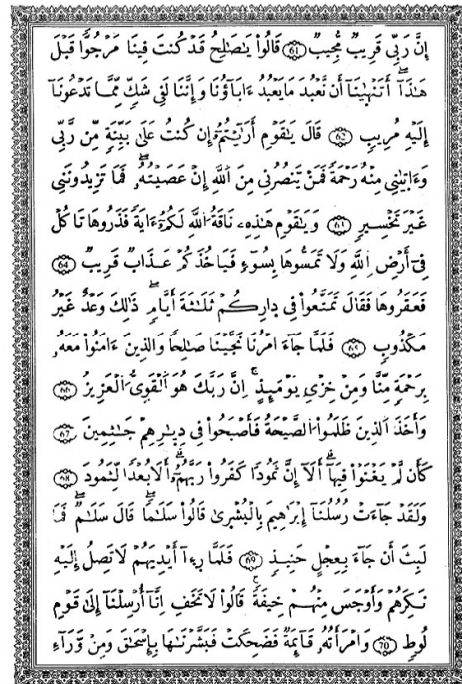 إِنَّ رَبِّي قَرِيبٌ مُّجِيبٌ 61 قَالُوا۟ يَٰصَٰلِحُ قَدْ كُنتَ فِينَا مَرْجُوًّا قَبْلَ
هَٰذَآ أَتَنْهَيٰنَآ أَن نَّعْبُدَ مَا يَعْبُدُ ءَابَآؤُنَا وَإِنَّنَا لَفِي شَكٍّ مِّمَّا تَدْعُونَآ
إِلَيْهِ مُرِيبٍ 62 قَالَ يَٰقَوْمِ أَرَٰيْتُمُۥٓ إِن كُنتُ عَلَىٰ بَيِّنَةٍ مِّن رَّبِّي
وَءَاتَيٰنِي مِنْهُ رَحْمَةً فَمَنْ يَّنصُرُنِي مِنَ اَللَّهِ إِنْ عَصَيْتُهُۥ فَمَا تَزِيدُونَنِي
غَيْرَ تَخْسِيرٍ 63 وَيَٰقَوْمِ هَٰذِهِۦ نَاقَةُ اُللَّهِ لَكُمُۥٓ ءَايَةً فَذَرُوهَا تَاكُلْ
فِيٓ أَرْضِ اِللَّهِ وَلَا تَمَسُّوهَا بِسُوٓءٍ فَيَاخُذَكُمْ عَذَابٌ قَرِيبٌ 64
فَعَقَرُوهَا فَقَالَ تَمَتَّعُوا۟ فِي دِارِكُمْ ثَلَٰثَةَ أَيَّامٍ ذَٰلِكَ وَعْدٌ غَيْرُ
مَكْذُوبٍ 65 فَلَمَّا جَآءَ امْرُنَا نَجَّيْنَا صَٰلِحًا وَالذِينَ ءَامَنُوا۟ مَعَهُۥ
بِرَحْمَةٍ مِّنَّا وَمِنْ خِزْيِ يَوْمَئِذٍ إِنَّ رَبَّكَ هُوَ اَلْقَوِيُّ اُلْعَزِيزُ 66
وَأَخَذَ اَلذِينَ ظَلَمُوا۟ اُلصَّيْحَةُ فَأَصْبَحُوا۟ فِي دِيٰرِهِمْ جَٰثِمِينَ 67
كَأَن لَّمْ يَغْنَوْا۟ فِيهَآ أَلَآ إِنَّ ثَمُودًا كَفَرُوا۟ رَبَّهُمُۥٓ أَلَا بُعْدًا لِّثَمُودَ 68
وَلَقَدْ جَآءَتْ رُسُلُنَآ إِبْرَٰهِيمَ بِالْبُشْرَىٰ قَالُوا۟ سَلَٰمًا قَالَ سَلَٰمٌ فَمَا
لَبِثَ أَن جَآءَ بِعِجْلٍ حَنِيذٍ 69 فَلَمَّا رِءَآ أَيْدِيَهُمْ لَا تَصِلُ إِلَيْهِ
نَكِرَهُمْ وَأَوْجَسَ مِنْهُمْ خِيفَةً قَالُوا۟ لَا تَخَفِ اِنَّآ أُرْسِلْنَآ إِلَىٰ قَوْمِ
لُوطٍ 70 وَامْرَأَتُهُۥ قَآئِمَةٌ فَضَحِكَتْ فَبَشَّرْنَٰهَا بِإِسْحَٰقَ وَمِنْ وَّرَآءِ